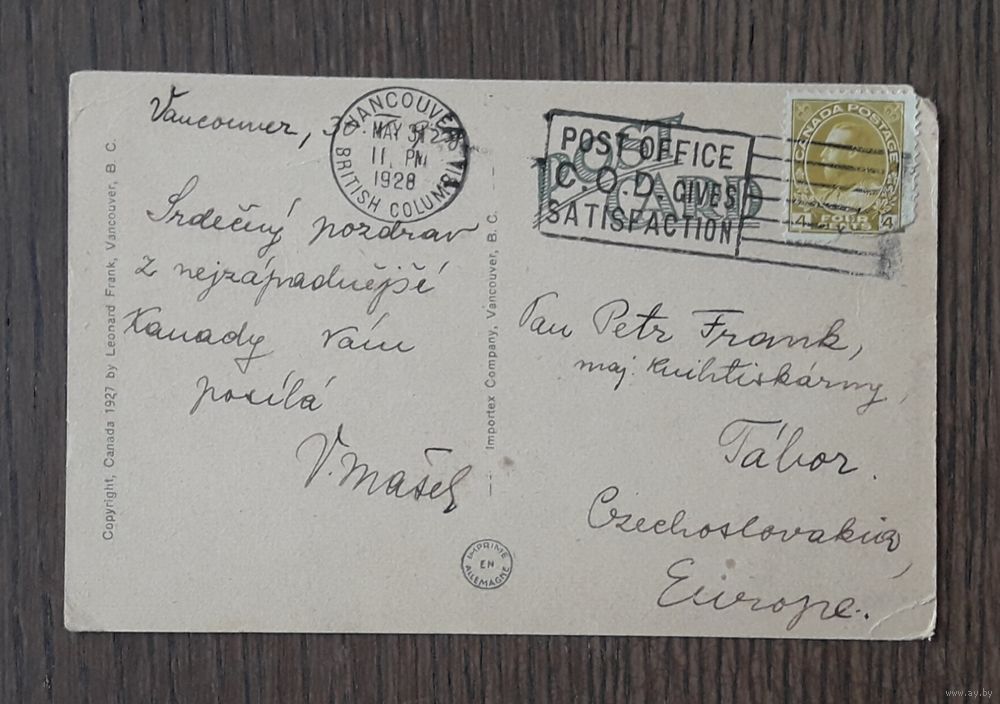 Vancouver, 30
VANCOUVER
MAY 31
11 PM
1928
BRITISH COLUMBIA
Srdečný pozdrav
z nejzápadnější
Kanady Vám
posílá
V. Mašek
Copyright, Canada 1927 by Leonard Frank, Vancouver, B. C.
Importex Company, Vancouver, B. C.
IMPRIMÉ
EN
ALLEMAGNE
POST CARD
POST OFFICE
C.O.D. GIVES
SATISFACTION
CANADA POSTAGE
4 FOUR 4
Pan Petr Frank,
maj. knihtiskárny
Tábor.
Czechoslovakia,
Europe.
www.ay.by